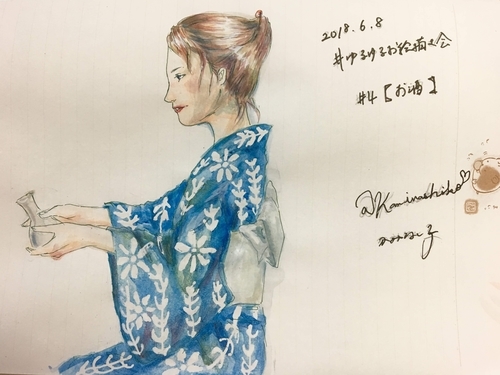 2018.6.8
#ゆるゆるお絵描き会
#4【お酒】
@Kaminashiko♡
かみなし子